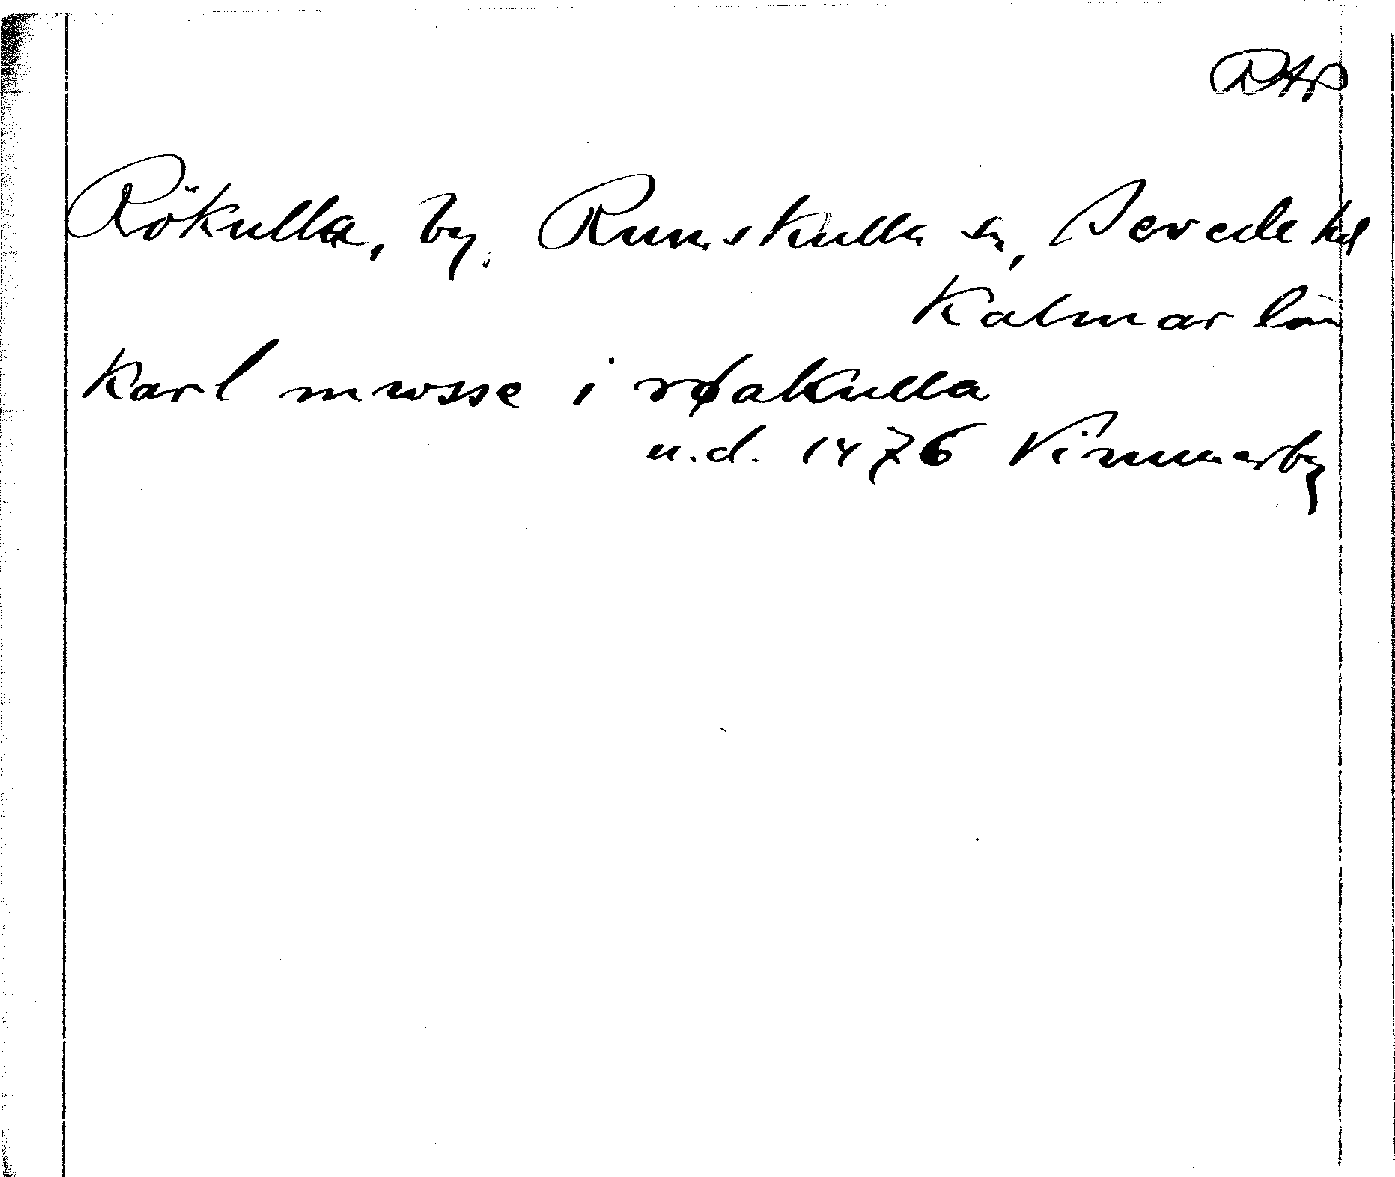 DAP
Rökulla, by, Rumskulla sn, Sevede hd
Kalmar län
karl mwsse i røakulla
u.d. 1476 Vimmerby